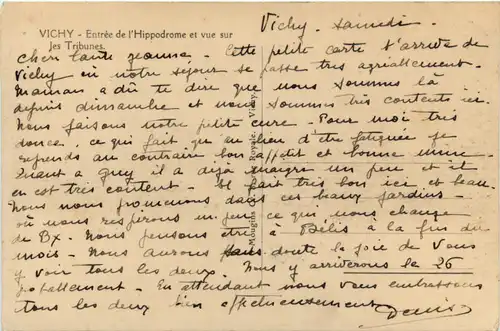 VICHY - Entrée de l'Hippodrome et vue sur
les Tribunes.
Vichy. Samedi.
Cher tante Jeanne - Cette petite carte t'arrive de
Vichy où notre séjour se passe très agréablement.
Maman a dû te dire que nous sommes là
depuis dimanche et nous sommes très contents ici.
Nous faisons notre petite cure - Pour moi très
douce, ce qui fait qu'au lieu d'être fatiguée je
reprends au contraire bon appétit et bonne mine.
Quant à Guy il a déjà maigri un peu et il
en est très content - Il fait très bon ici et beau.
Nous nous promenons dans ces beaux jardins -
où nous respirons un peu ce qui nous change
de Bx. Nous pensons être à Bélis à la fin du
mois - Nous aurons sans doute la joie de vous
y voir tous les deux. Nous y arriverons le 26
probablement - En attendant nous vous embrassons
tous les deux bien affectueusement
Denis
Mougins Royale, Vichy